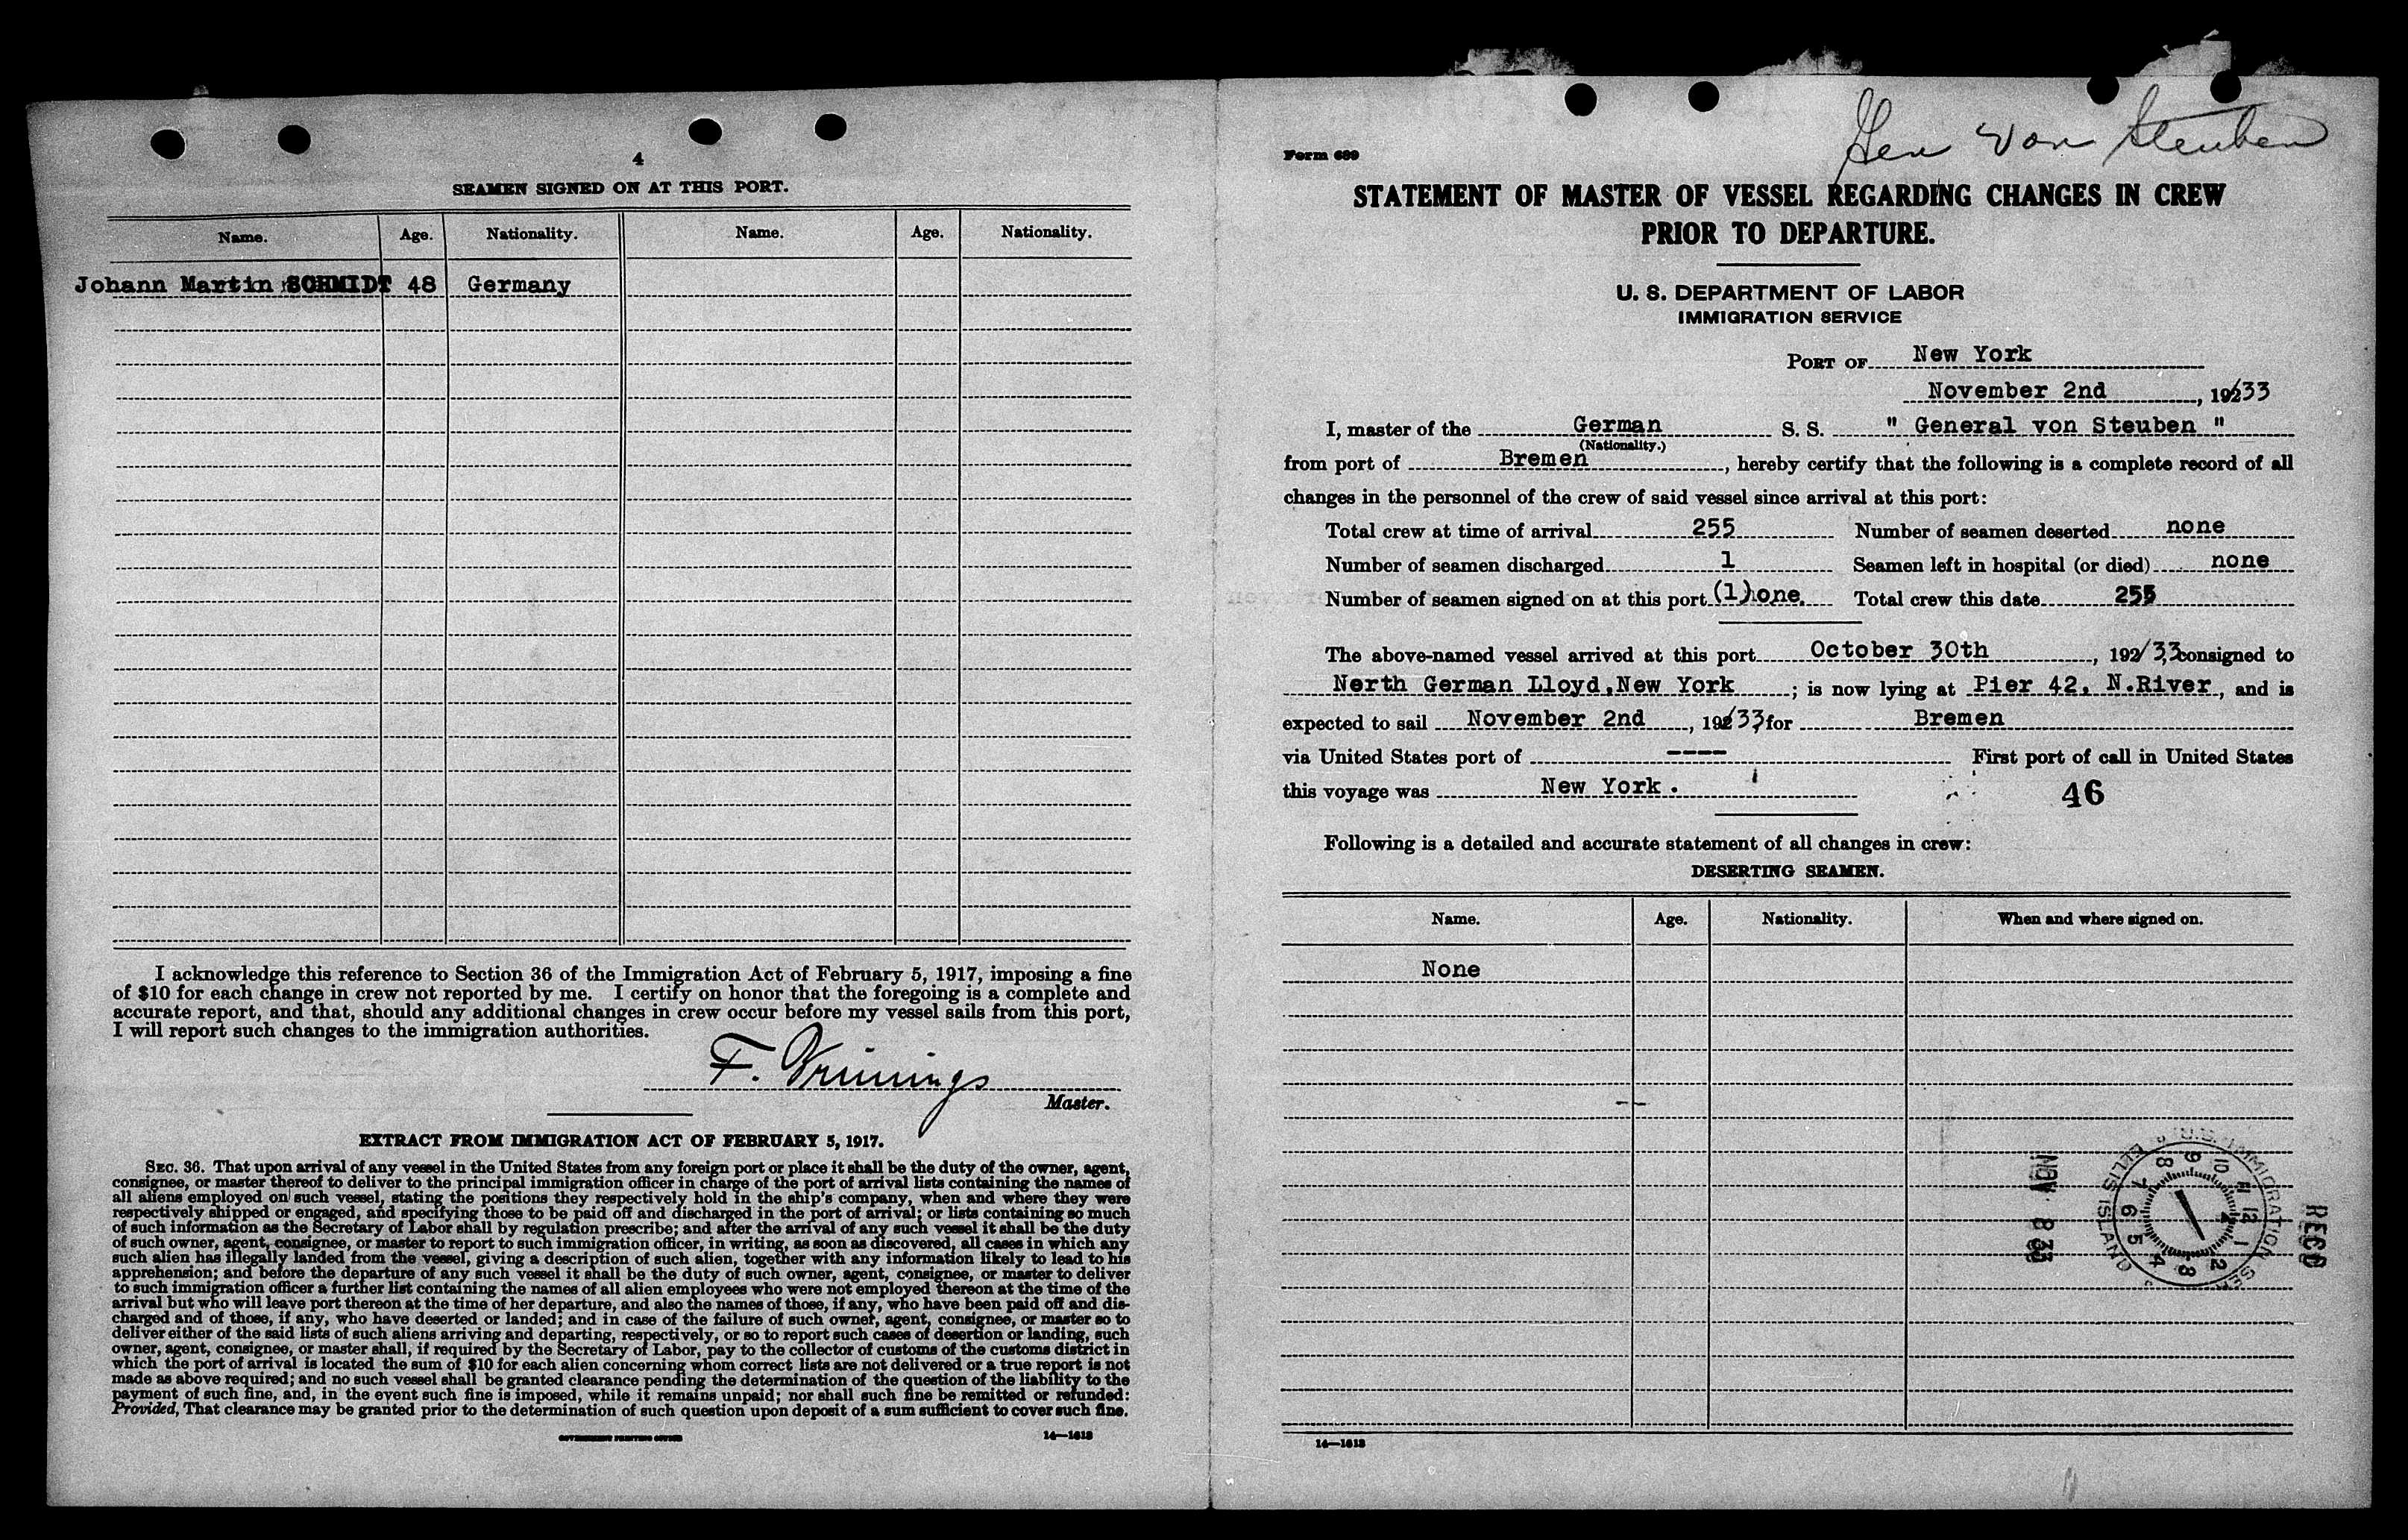 4
SEAMEN SIGNED ON AT THIS PORT.
Name. Age. Nationality. Name. Age. Nationality.
Johann Martin SCHMIDT 48 Germany
I acknowledge this reference to Section 36 of the Immigration Act of February 5, 1917, imposing a fine
of $10 for each change in crew not reported by me. I certify on honor that the foregoing is a complete and
accurate report, and that, should any additional changes in crew occur before my vessel sails from this port,
I will report such changes to the immigration authorities.
F.
Master.
EXTRACT FROM IMMIGRATION ACT OF FEBRUARY 5, 1917.
SEC. 36. That upon arrival of any vessel in the United States from any foreign port or place it shall be the duty of the owner, agent,
consignee, or master thereof to deliver to the principal immigration officer in charge of the port of arrival lists containing the names of
all aliens employed on such vessel, stating the positions they respectively hold in the ship's company, when and where they were
respectively shipped or engaged, and specifying those to be paid off and discharged in the port of arrival; or lists containing so much
of such information as the Secretary of Labor shall by regulation prescribe; and after the arrival of any such vessel it shall be the duty
of such owner, agent, consignee, or master to report to such immigration officer, in writing, as soon as discovered, all cases in which any
such alien has illegally landed from the vessel, giving a description of such alien, together with any information likely to lead to his
apprehension; and before the departure of any such vessel it shall be the duty of such owner, agent, consignee, or master to deliver
to such immigration officer a further list containing the names of all alien employees who were not employed thereon at the time of the
arrival but who will leave port thereon at the time of her departure, and also the names of those, if any, who have been paid off and dis-
charged and of those, if any, who have deserted or landed; and in case of the failure of such owner, agent, consignee, or master so to
deliver either of the said lists of such aliens arriving and departing, respectively, or so to report such cases of desertion or landing, such
owner, agent, consignee, or master shall, if required by the Secretary of Labor, pay to the collector of customs of the customs district in
which the port of arrival is located the sum of $10 for each alien concerning whom correct lists are not delivered or a true report is not
made as above required; and no such vessel shall be granted clearance pending the determination of the question of the liability to the
payment of such fine, and, in the event such fine is imposed, while it remains unpaid; nor shall such fine be remitted or refunded:
Provided, That clearance may be granted prior to the determination of such question upon deposit of a sum sufficient to cover such fine.
GOVERNMENT PRINTING OFFICE 14—1613
Gen von Steuben
Form 689
STATEMENT OF MASTER OF VESSEL REGARDING CHANGES IN CREW
PRIOR TO DEPARTURE.
U. S. DEPARTMENT OF LABOR
IMMIGRATION SERVICE
PORT OF New York
November 2nd, 192/33
I, master of the German S. S. " General von Steuben "
(Nationality.)
from port of Bremen, hereby certify that the following is a complete record of all
changes in the personnel of the crew of said vessel since arrival at this port:
Total crew at time of arrival 255 Number of seamen deserted none
Number of seamen discharged 1 Seamen left in hospital (or died) none
Number of seamen signed on at this port (1)one. Total crew this date 255
The above-named vessel arrived at this port October 30th, 192/33, consigned to
North German Lloyd, New York; is now lying at Pier 42, N.River, and is
expected to sail November 2nd, 192/33, for Bremen
via United States port of ---- First port of call in United States
this voyage was New York. 46
Following is a detailed and accurate statement of all changes in crew:
DESERTING SEAMEN.
Name. Age. Nationality. When and where signed on.
None
NOV 8 33
U.S. IMMIGRATION SER ELLIS ISLAND
1 2 3 4 5 6 7 8 9 10 11 12
RECD
14—1613